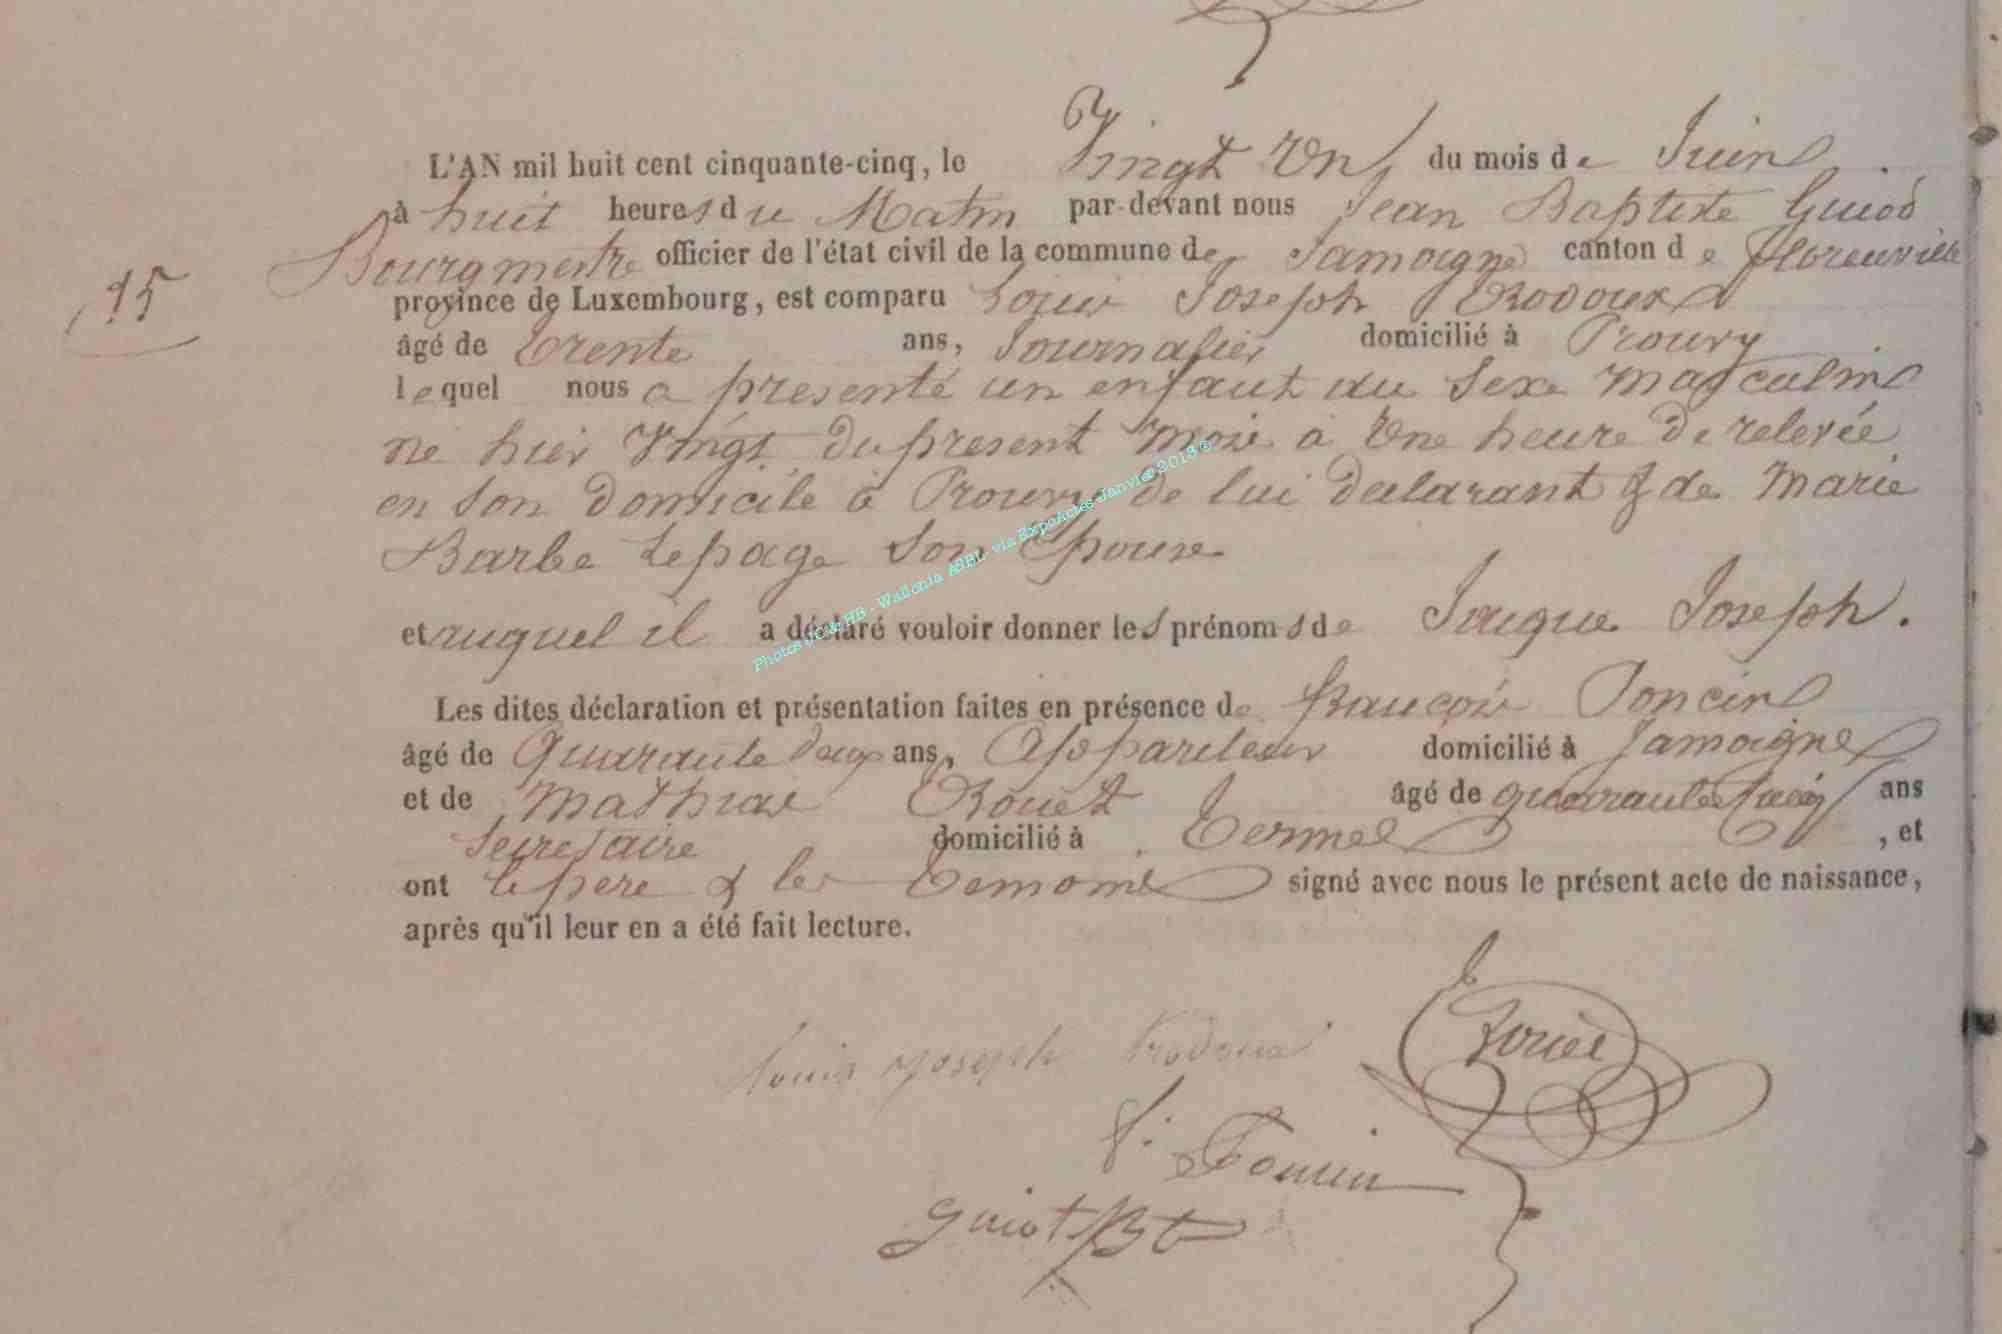 L'AN mil huit cent cinquante-cinq, le Vingt Un du mois de Juin
à huit heures du Matin par-devant nous Jean Baptiste Guiot
Bourgmestre officier de l'état civil de la commune de Jamoigne canton de florenville
15
province de Luxembourg, est comparu Louis Joseph Rodoux
âgé de trente ans, Journalier domicilié à Prouvy
lequel nous a presenté un enfant du Sexe Masculin
né hier Vingt du present mois à Une heure de relevée
en son domicile à Prouvy de lui declarant & de Marie
Barbe Lepage son Epouse
et auquel il a déclaré vouloir donner les prénoms de Jaque Joseph.
Photos JC & HB - Wallonia ASBL via ExpoActes Janvier 2018 ©
Les dites déclaration et présentation faites en présence de françois Poncin
âgé de Quarante deux ans, domicilié à Jamoigne
et de Mathias Rouet âgé de quarante cinq ans
Secretaire domicilié à Termes, et
ont le pere & les temoins signé avec nous le présent acte de naissance,
après qu'il leur en a été fait lecture.
Rouet
Louis Joseph Rodoux
f. Poncin
Guiot JBte